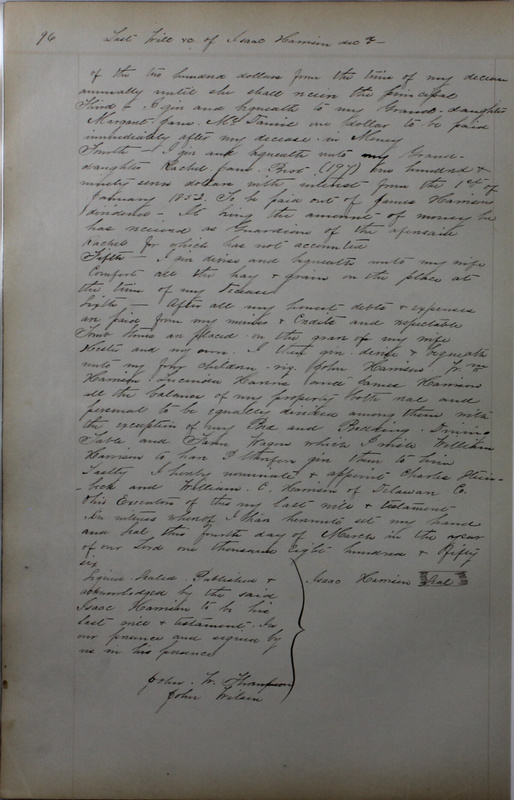 96 Last Will &c of Isaac Harrison dec'd
of the two hundred dollars from the time of my decease
annually until she shall receive the principal
Third - I give and bequeath to my Grand-daughter
Margaret Jane Mc one dollar to be paid
immediately after my decease in Money
Fourth - I give and bequeath unto my Grand-
daughter Rachel Jane (197) one hundred &
ninety seven dollars with interest from the 1st of
February 1852. To be paid out of James Harrison
dividend - It being the amount of money he
has received as Guardian of the aforesaid
Rachel for which has not accounted
Fifth - I give devise and bequeath unto my wife
Comfort all the hay & grain on the place at
the time of my decease
Sixth - After all my honest debts & expenses
are paid from my monies & Credits and respectable
Tomb Stones are placed on the grave of my wife
Hester and my own. I then give devise & bequeath
unto my four children viz. John Harrison Wm
Harrison Lucinda and James Harrison
all the balance of my property both real and
personal to be equally divided among them with
the exception of my Bed and Bedding. Dining
Table and Farm Wagon which I wish William
Harrison to have I therefore give them to him
Lastly I hereby nominate & appoint Charles
and William C. Harrison of Delaware Co.
Ohio Executors of this my last will & testament
In witness whereof I have hereunto set my hand
and seal this fourth day of March in the year
of our Lord one thousand Eight hundred & fifty
six
Signed Sealed Published &
acknowledged by the said
Isaac Harrison to be his
last will & testament. In
our presence and signed by
us in his presence
Isaac Harrison Seal
John W. Thompson
John Wilson